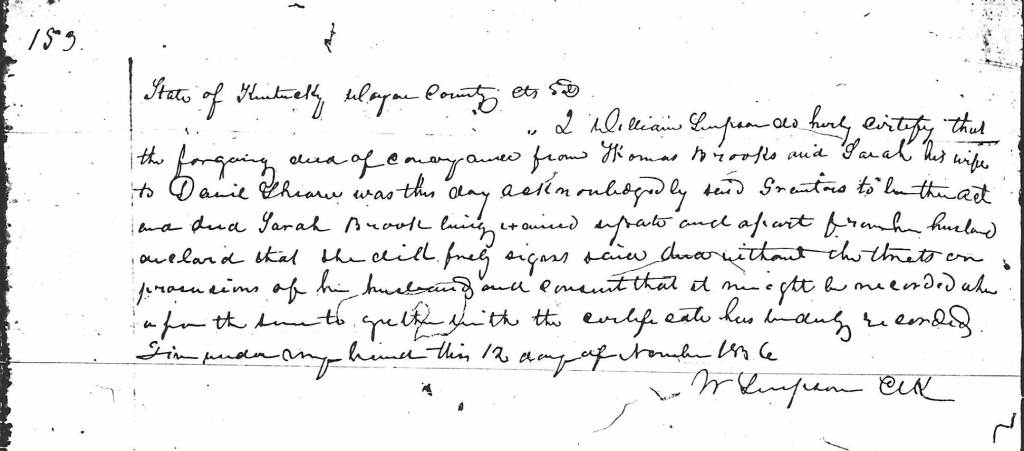 159.
State of Kentucky Wayne County Cts Sd
" I William Simpson do herby certify that
the forgoing deed of conveyance from Thomas Brooks and Sarah his wife
to Daniel was this day acknowledged by said Grantors to be their act
and deed Sarah Brook being examined seprate and apart from her husband
declard that she did freely sign said deed without the threts or
of her husband and consent that it might be recorded where
upon the same to gether with the certificate has ben duly recorded
Given under my hand this 12 day of
W Simpson Clk